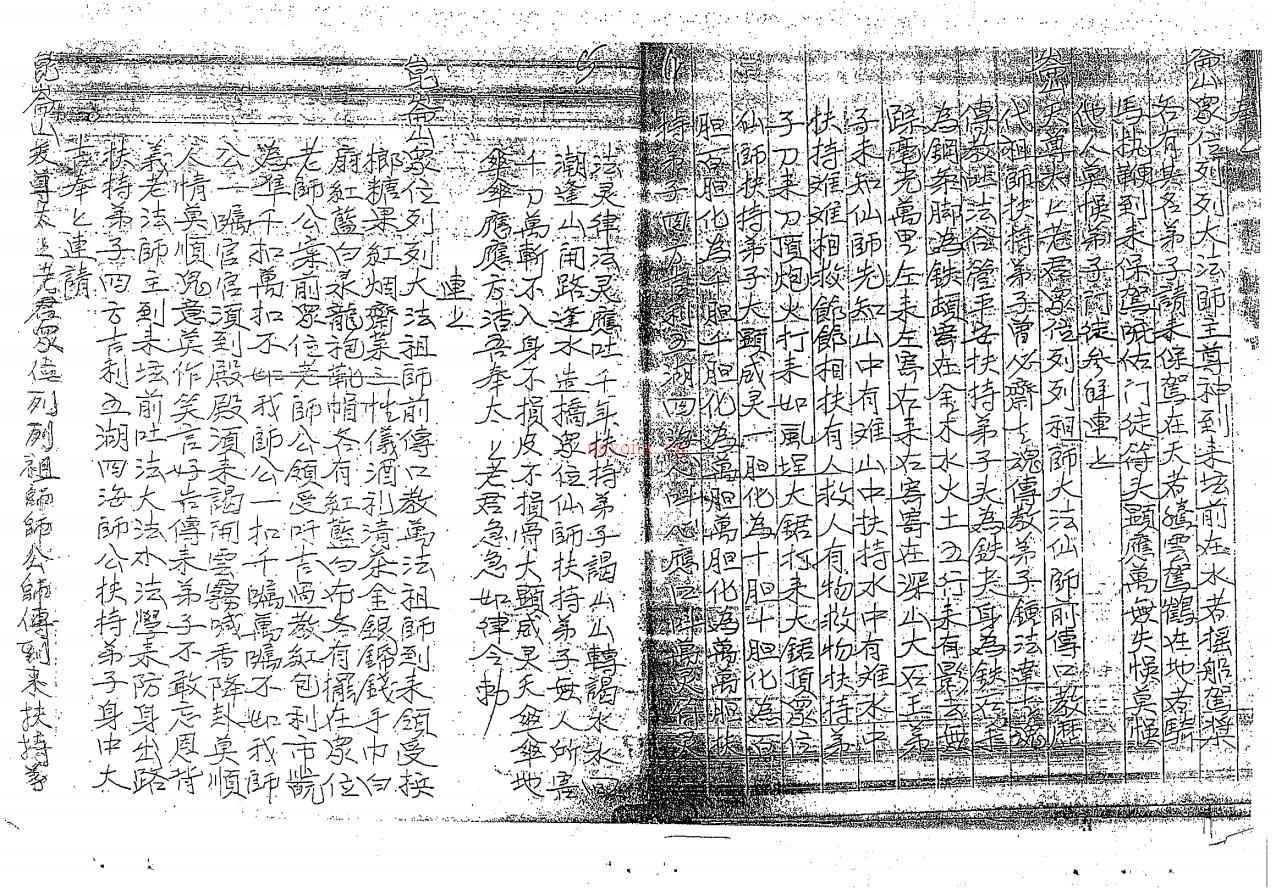 奉上
崙山眾位列列大法師主尊神到未坛前在水者摇船駕槳
各有其名弟子請未保駕在天者騰雲駕鶴在地者騎
馬执鞭到未保駕㕥佑门徒符头顯應萬無失悞莫悮
他人莫悮弟子门徒参拜連上
崙山天尊太上老君眾位列列祖師大法仙師前傳口教歷
代祖師扶持弟子曾必齋士魂傳教弟子鍊法韋十魂
傳教 法合營平安扶持弟子头為鉄夾身為鉄石手
為鋼 脚為鉄 寄在金木水火土五行未有影去無
踪毫光萬里左未左寄右未右寄寄在深山大石王弟
子未知仙師先知山中有难山中扶持水中有难水中
扶持难难相救節節相扶有人救人有物救物扶持弟
子刀未刀頂炮火打未如風埕大鋸打未大鋸頂眾位
仙師扶持弟子大顯威灵一胆化為十胆十胆化為百
胆百胆化為千胆千胆化為萬胆萬胆化為萬萬胆扶
持弟子四方吉利五湖四海
法灵律法灵應吐千年扶持弟子謁山山轉謁水水
潮逢山開路逢水造橋眾位仙師扶持弟子毋人所害
千刀萬斬不入身不損皮不損骨大顯威灵天傘傘地
傘傘應應方浩吾奉太上老君急急如律令勅
連上
崑崙山眾位列列大法祖師前傳口教萬法祖師到未領受接
榔糖果紅烟齋菜三牲儀酒礼清茶金銀錦錢手巾白
扇紅藍白衣龍袍靴帽各有紅藍白布各有擺在眾位
老師公案前眾位老師公領受吁吉過教紅包利市
為準千扣萬扣不如我師公一扣千嘱萬嘱不如我師
公一嘱官官湏到殿殿湏未謁開雲霧喊香降卦莫順
人情莫順鬼意莫作笑言好吉傳未弟子不敢忘恩背
義老法師主到未坛前吐法大法水法學未防身出路
扶持弟子四方吉利五湖四海師公扶持弟子身中大
吉奉上連請
崑崙山天尊太上老君眾位列列祖師師公師傅到未扶持弟